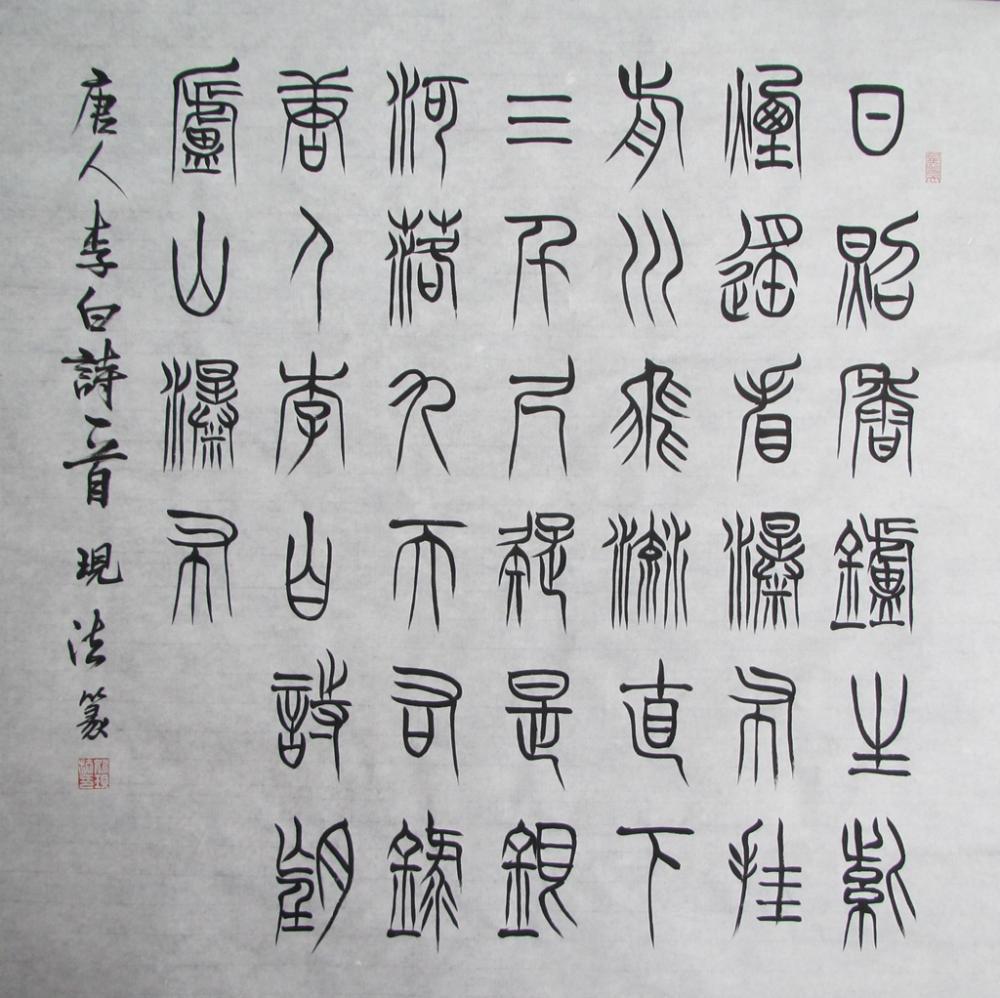 日照香鑪生紫
煙遙看瀑布挂
前川飛流直下
三千尺疑是銀
河落九天右錄
唐人李白詩望
廬山瀑布
唐人李白詩一首 現法篆